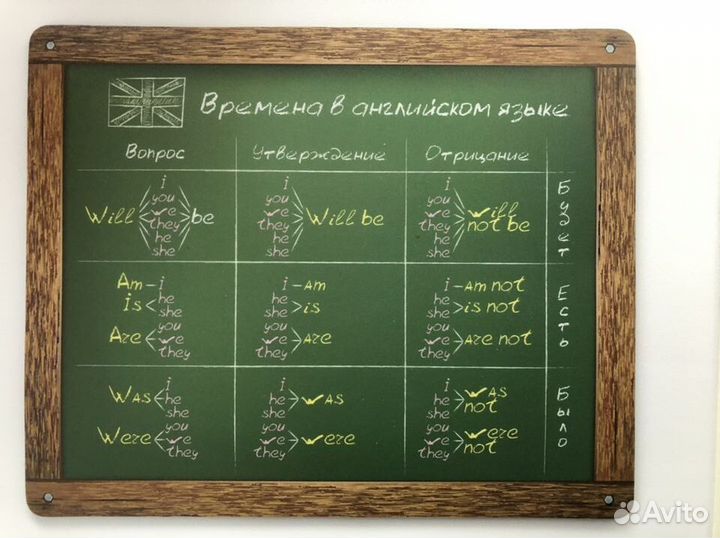 Времена в английском языке
Вопрос Утверждение Отрицание
Will i you we they he she be
i you we they he she Will be
i you we they he she will not be
Будет
Am i
is he she
Are you we they
i am
he she is
you we they are
i am not
he she is not
you we they are not
Есть
Was i he she
Were you we they
i he she was
you we they were
i he she was not
you we they were not
Было
Avito